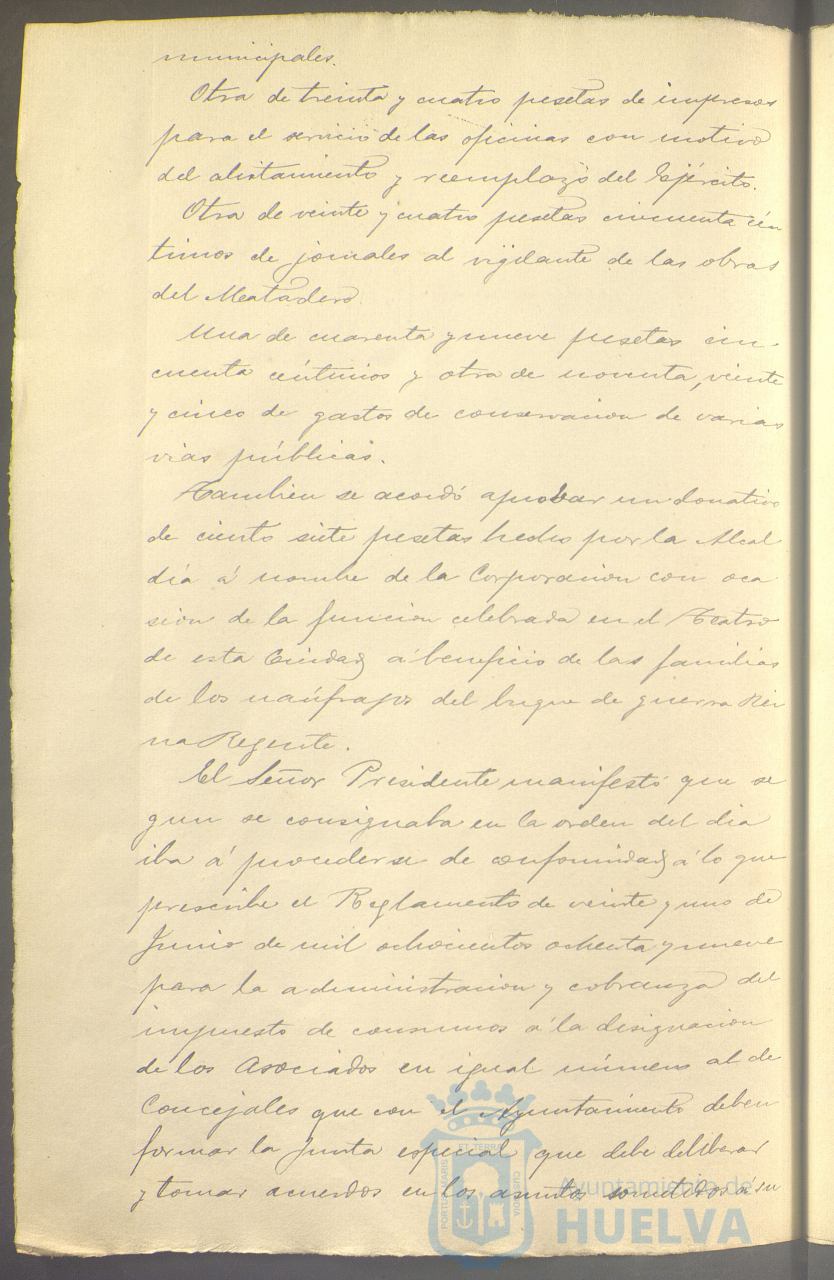 municipales.
Otra de treinta y cuatro pesetas de impresos
para el servicio de las oficinas con motivo
del alistamiento y reemplazo del Ejército.
Otra de veinte y cuatro pesetas cincuenta cén
timos de jornales al vigilante de las obras
del Matadero.
Una de cuarenta y nueve pesetas cin-
cuenta céntimos y otra de noventa, veinte
y cinco de gastos de conservacion de varias
vias públicas.
Tambien se acordó aprobar un donativo
de ciento siete pesetas hecho por la Alcal
día á nombre de la Corporacion con oca
sion de la funcion celebrada en el Teatro
de esta Ciudad á beneficio de las familias
de los naúfragos del buque de guerra Rei
na Regente.
El Señor Presidente manifestó que se
gun se consignaba en la orden del dia
iba á procederse de conformidad á lo que
prescribe el Reglamento de veinte y uno de
Junio de mil ochocientos ochenta y nueve
para la administracion y cobranza del
impuesto de consumos á la designacion
de los Asociados en igual número al de
Concejales que con el Ayuntamiento deben
formar la Junta especial que debe deliberar
y tomar acuerdos en los asuntos sometidos á su
PORTUS MARIS ET TERRAE CUSTODIA
Ayuntamiento de
HUELVA